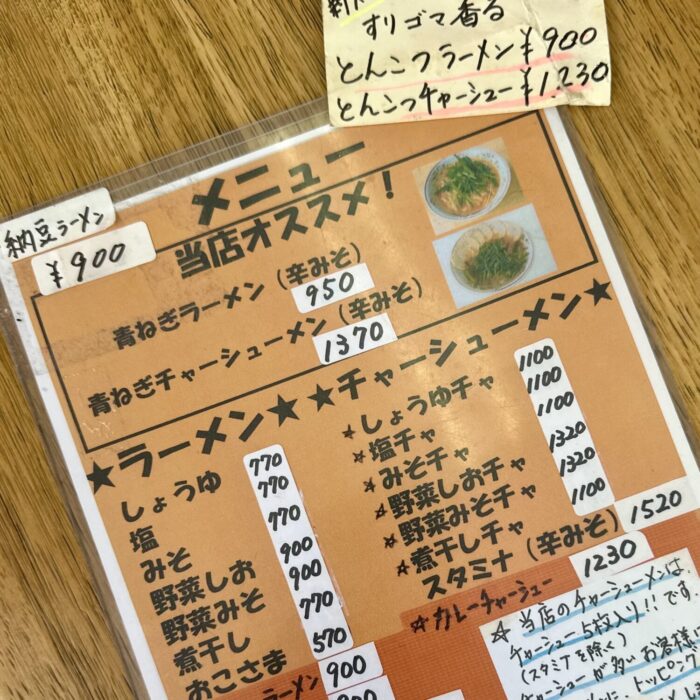 すりゴマ香る
とんこつラーメン ¥900
とんこつチャーシュー ¥1,230
納豆ラーメン
¥900
メニュー
当店オススメ!
青ねぎラーメン(辛みそ)
950
青ねぎチャーシューメン(辛みそ)
1370
★ラーメン★
しょうゆ 770
塩 770
みそ 770
野菜しお 900
野菜みそ 900
煮干し 770
おこさま 570
ラーメン 900
900
★チャーシューメン★
☆しょうゆチャ 1100
☆塩チャ 1100
☆みそチャ 1100
☆野菜しおチャ 1320
☆野菜みそチャ 1320
☆煮干しチャ 1100
スタミナ(辛みそ) 1520
☆カレーチャーシュー 1230
☆当店のチャーシューメンは、
チャーシュー5枚入り!!です。
(スタミナを除く)
チャーシューが多いお客様
トッピング